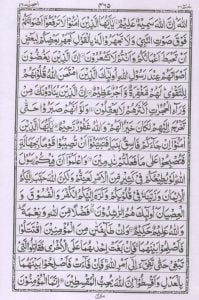 اللّٰهَ اِنَّ اللّٰهَ سَمِيْعٌ عَلِيْمٌ يٰۤاَيُّهَا الَّذِيْنَ اٰمَنُوْا لَا تَرْفَعُوْۤا اَصْوَاتَكُمْ
فَوْقَ صَوْتِ النَّبِيِّ وَلَا تَجْهَرُوْا لَهٗ بِالْقَوْلِ كَجَهْرِ بَعْضِكُمْ لِبَعْضٍ
اَنْ تَحْبَطَ اَعْمَالُكُمْ وَاَنْتُمْ لَا تَشْعُرُوْنَ اِنَّ الَّذِيْنَ يَغُضُّوْنَ
اَصْوَاتَهُمْ عِنْدَ رَسُوْلِ اللّٰهِ اُولٰٓئِكَ الَّذِيْنَ امْتَحَنَ اللّٰهُ قُلُوْبَهُمْ
لِلتَّقْوٰى لَهُمْ مَّغْفِرَةٌ وَّاَجْرٌ عَظِيْمٌ اِنَّ الَّذِيْنَ يُنَادُوْنَكَ مِنْ
وَّرَآءِ الْحُجُرٰتِ اَكْثَرُهُمْ لَا يَعْقِلُوْنَ وَلَوْ اَنَّهُمْ صَبَرُوْا حَتّٰى
تَخْرُجَ اِلَيْهِمْ لَكَانَ خَيْرًا لَّهُمْ وَاللّٰهُ غَفُوْرٌ رَّحِيْمٌ يٰۤاَيُّهَا الَّذِيْنَ
اٰمَنُوْۤا اِنْ جَآءَكُمْ فَاسِقٌۢ بِنَبَاٍ فَتَبَيَّنُوْۤا اَنْ تُصِيْبُوْا قَوْمًۢا بِجَهَالَةٍ
فَتُصْبِحُوْا عَلٰى مَا فَعَلْتُمْ نٰدِمِيْنَ وَاعْلَمُوْۤا اَنَّ فِيْكُمْ رَسُوْلَ
اللّٰهِ لَوْ يُطِيْعُكُمْ فِيْ كَثِيْرٍ مِّنَ الْاَمْرِ لَعَنِتُّمْ وَلٰكِنَّ اللّٰهَ حَبَّبَ اِلَيْكُمُ
الْاِيْمَانَ وَزَيَّنَهٗ فِيْ قُلُوْبِكُمْ وَكَرَّهَ اِلَيْكُمُ الْكُفْرَ وَالْفُسُوْقَ وَ
الْعِصْيَانَ اُولٰٓئِكَ هُمُ الرّٰشِدُوْنَ فَضْلًا مِّنَ اللّٰهِ وَنِعْمَةً
وَاللّٰهُ عَلِيْمٌ حَكِيْمٌ وَاِنْ طَآئِفَتٰنِ مِنَ الْمُؤْمِنِيْنَ اقْتَتَلُوْا
فَاَصْلِحُوْا بَيْنَهُمَا فَاِنْۢ بَغَتْ اِحْدٰىهُمَا عَلَى الْاُخْرٰى فَقَاتِلُوا الَّتِيْ
تَبْغِيْ حَتّٰى تَفِيْٓءَ اِلٰۤى اَمْرِ اللّٰهِ فَاِنْ فَآءَتْ فَاَصْلِحُوْا بَيْنَهُمَا
بِالْعَدْلِ وَاَقْسِطُوْا اِنَّ اللّٰهَ يُحِبُّ الْمُقْسِطِيْنَ اِنَّمَا الْمُؤْمِنُوْنَ